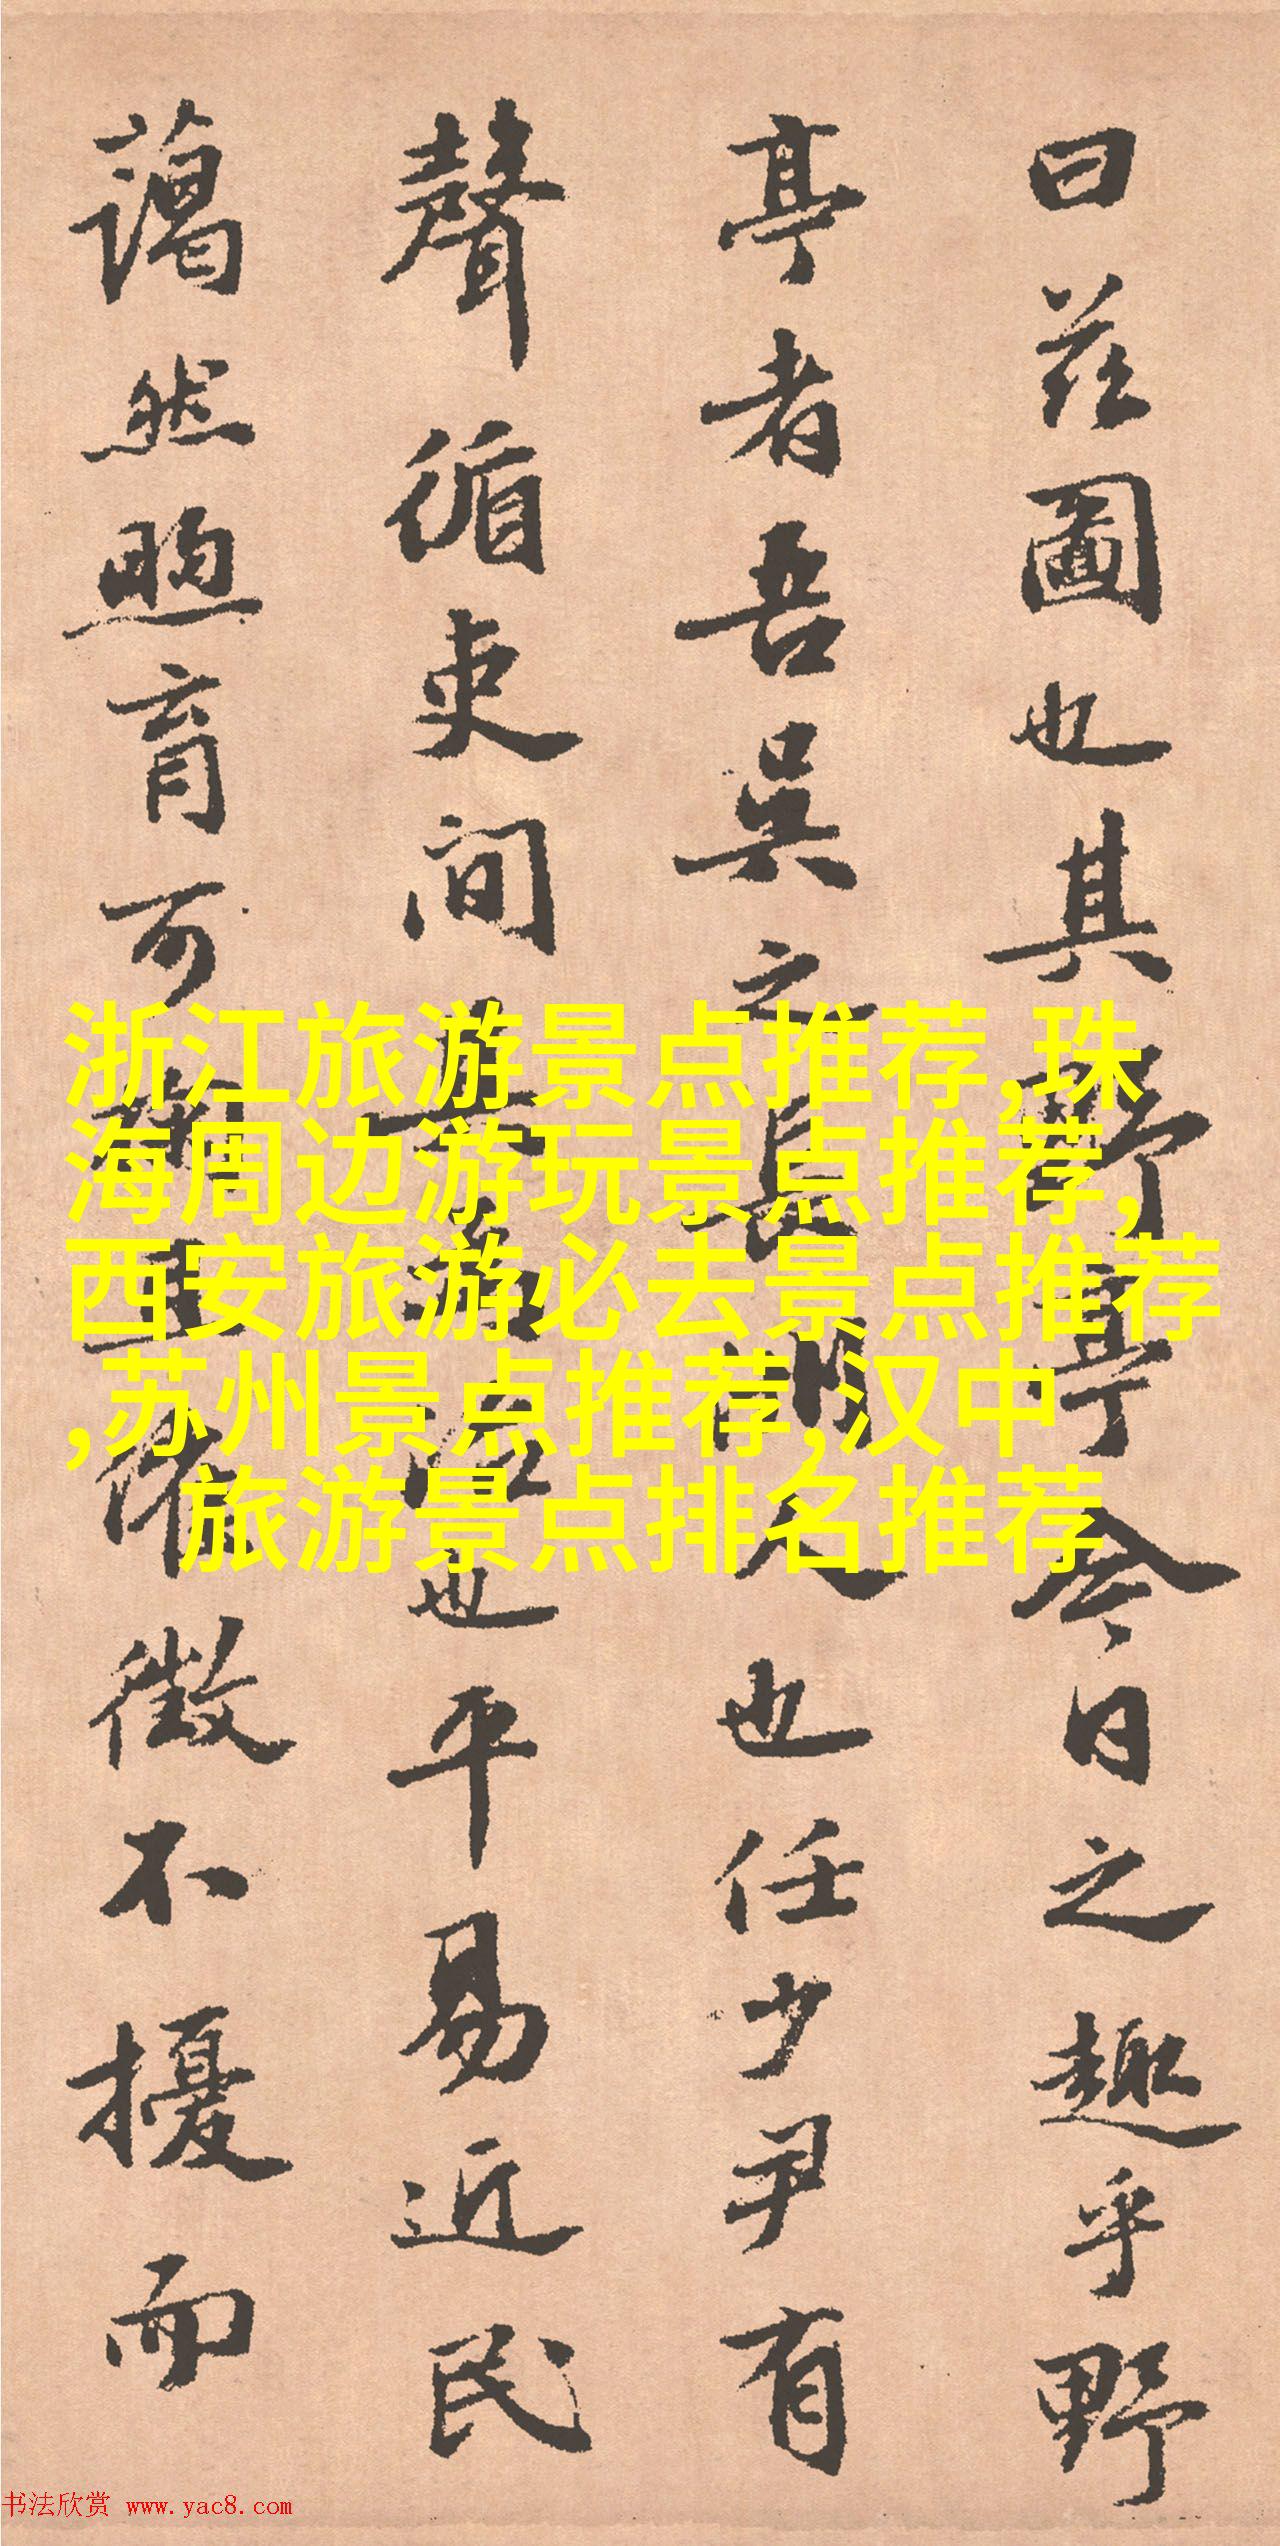 曰茲圖也其野亭今日之趣乎野
亭者吾吳之長洲人也任少尹有
聲循吏間其為也平易近民
藹然煦育可且催徵不擾而
浙江旅游景点推荐,珠
海周边游玩景点推荐,
西安旅游必去景点推荐
,苏州景点推荐,汉中
旅游景点排名推荐
书法欣赏 www.yac8.com